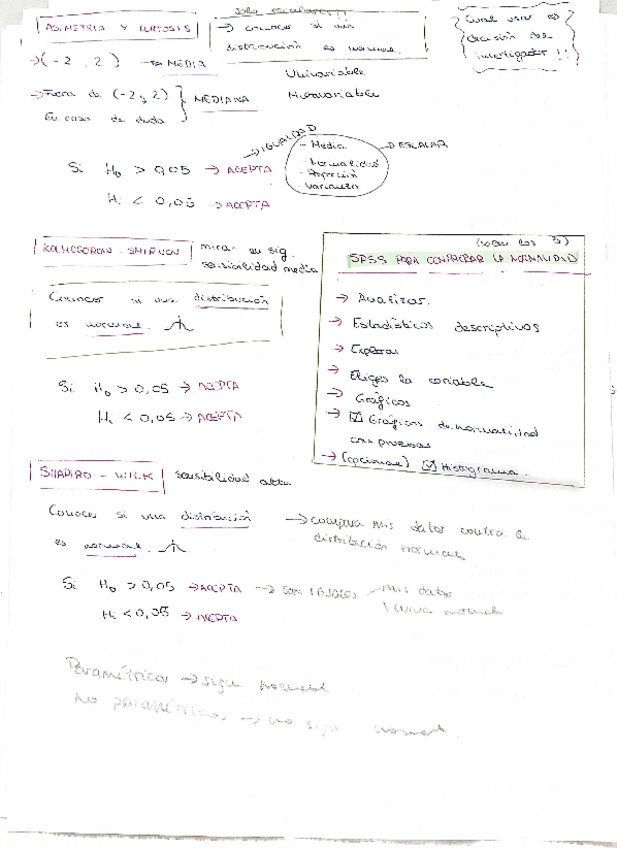 Solo escalar!!!
ASIMETRIA Y CURTOSIS
→ conocer si una
distribución es normal.
Cual usar es
decisión del
investigador !!
→ (-2, 2) → MEDIA
Univariable
→ Fuera de (-2, 2) } MEDIANA
Multivariable
En caso de duda
→ IGUALDAD
- Media → ESCALAR
- Normalidad
- Regresión
- Varianza
Si H₀ > 0,05 → ACEPTA
H₁ < 0,05 → ACEPTA
KOLMOGOROV - SMIRNOV
mirar en sig.
sensibilidad media
Conocer si una distribución
es normal.
Si H₀ > 0,05 → ACEPTA
H₁ < 0,05 → ACEPTA
(todas las 3)
SPSS PARA COMPROBAR LA NORMALIDAD
→ Analizar.
→ Estadísticos descriptivos
→ Explorar
→ Eliges la variable
→ Gráficos
→ ☑ Gráficos de normalidad
con pruebas
→ (opcional) ☑ Histograma.
SHAPIRO - WILK
sensibilidad alta.
Conocer si una distribución
es normal.
→ compara mis datos contra la
distribución normal
Si H₀ > 0,05 → ACEPTA → SON IGUALES
Mis datos
curva normal
H₁ < 0,05 → ACEPTA
Paramétricos → sigue normal
No paramétricos → no sigue normal.